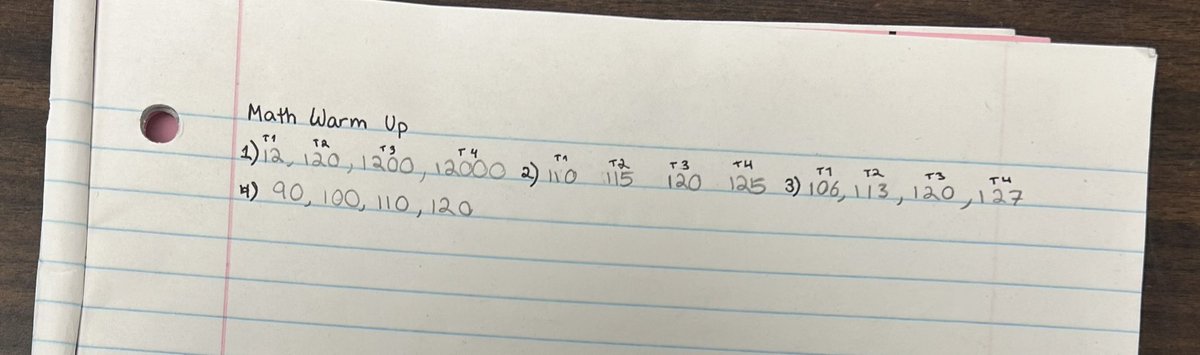 Math Warm Up
T1 T2 T3 T4 T1 T2 T3 T4 T1 T2 T3 T4
1) 12, 120, 1200, 12000 2) 110 115 120 125 3) 106, 113, 120, 127
4) 90, 100, 110, 120